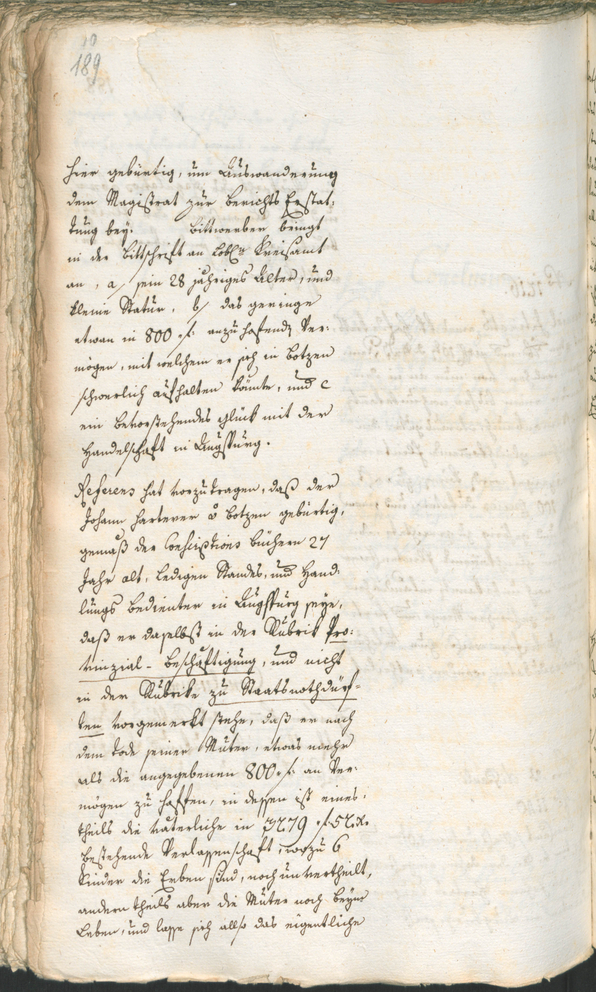 189
hier gebürtig, um Auswanderung
dem Magistrat zur Berichts Erstat¬
tung bey. Bittwerber bringt
in der Bittschrift an Löbl. Kreisamt
an, a/ sein 28 jähriges Alter, und
kleine Statur, b/ das geringe
etwan in 800 f. anzuhofende Ver¬
mögen, mit welchem er sich in Botzen
schwerlich aufhalten könnte, und c
ein bevorstehendes Glück mit der
Handelschaft in Augspurg.
Referens hat vorzutragen, daß der
Johann Harterer a Botzen gebürtig,
gemäß der Conscriptions büchern 27
Jahr alt, Ledigen Standes, und Hand¬
lungs bedienter in Augspurg seye,
daß er daselbst in der Rubrik Pro¬
vinzial-Beschäftigung, und nicht
in der Rubrike zu Staatsnothdürf¬
ten vorgemerkt stehe, daß er nach
dem Tode seiner Mutter, etwas mehr
als die angegebenen 800 f. an Ver¬
mögen zu hoffen, in dessen ist eines¬
theils die väterliche in 3279 f. 52 x.
bestehende Verlassenschaft, worzu 6
Kinder die Erben sind, noch unvertheilt,
andern theils aber die Mutter noch beym
Leben, und lasse sich also das eigentliche